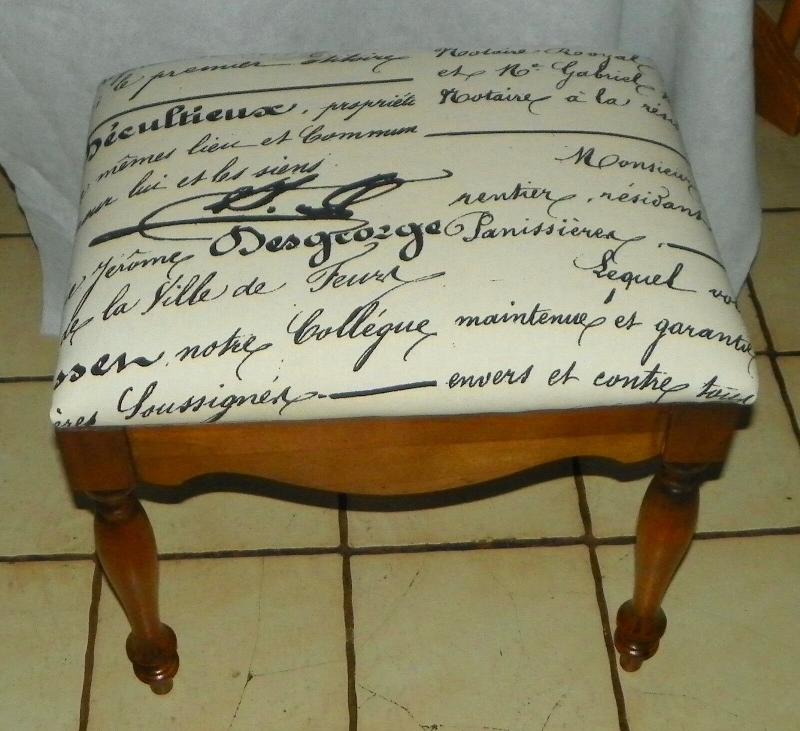 le premier
Décultieux, propriété
mêmes lieu et Commun
pour lui et les siens
Desgeorge
Jérôme
de la Ville de Feurs
notre Collégue maintenue et garantie
Soussignés envers et contre tous
Notaire Royal
et Me Gabriel
Notaire à la rési
Monsieur
rentier, résidant
Panissières,
Lequel